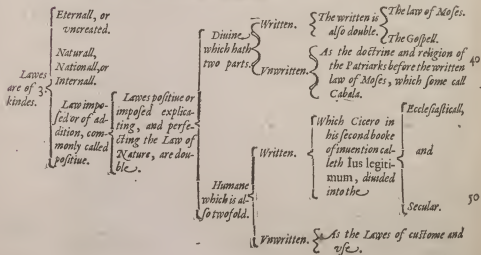 Lawes
are of 3.
kindes.
Eternall, or
vncreated.
Naturall,
Nationall, or
Internall.
Law impo-
sed or of ad-
dition, com-
monly called
positiue.
Lawes positiue or
imposed explica-
ting, and perfe-
cting the Law of
Nature, are dou-
ble.
Diuine
which hath
two parts.
Written.
The written is
also double.
The law of Moses.
The Gospell.
Vnwritten.
As the doctrine and religion of
the Patriarks before the written
law of Moses, which some call
Cabala.
40
Humane
which is al-
so twofold.
Written.
Which Cicero in
his second booke
of inuention cal-
leth Ius legiti-
mum, diuided
into the
Ecclesiasticall,
and
Secular.
50
Vnwritten.
As the Lawes of custome and
vse.